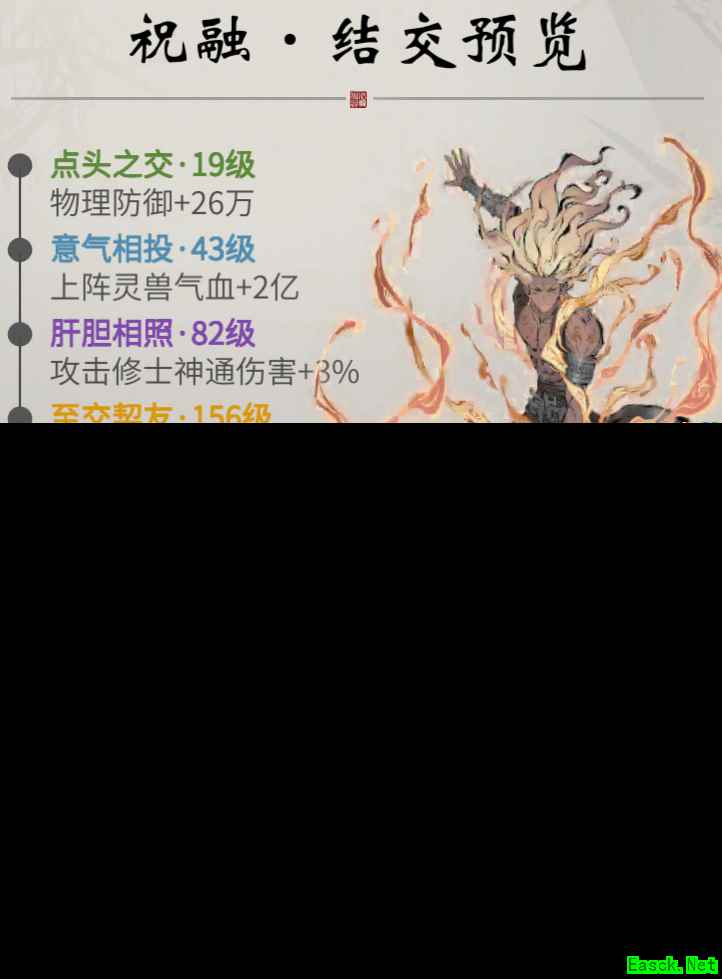 祝融·结交预览
点头之交·19级
物理防御+26万
意气相投·43级
上阵灵兽气血+2亿
肝胆相照·82级
攻击修士神通伤害+3%
至交契友·156级
Easck.Net